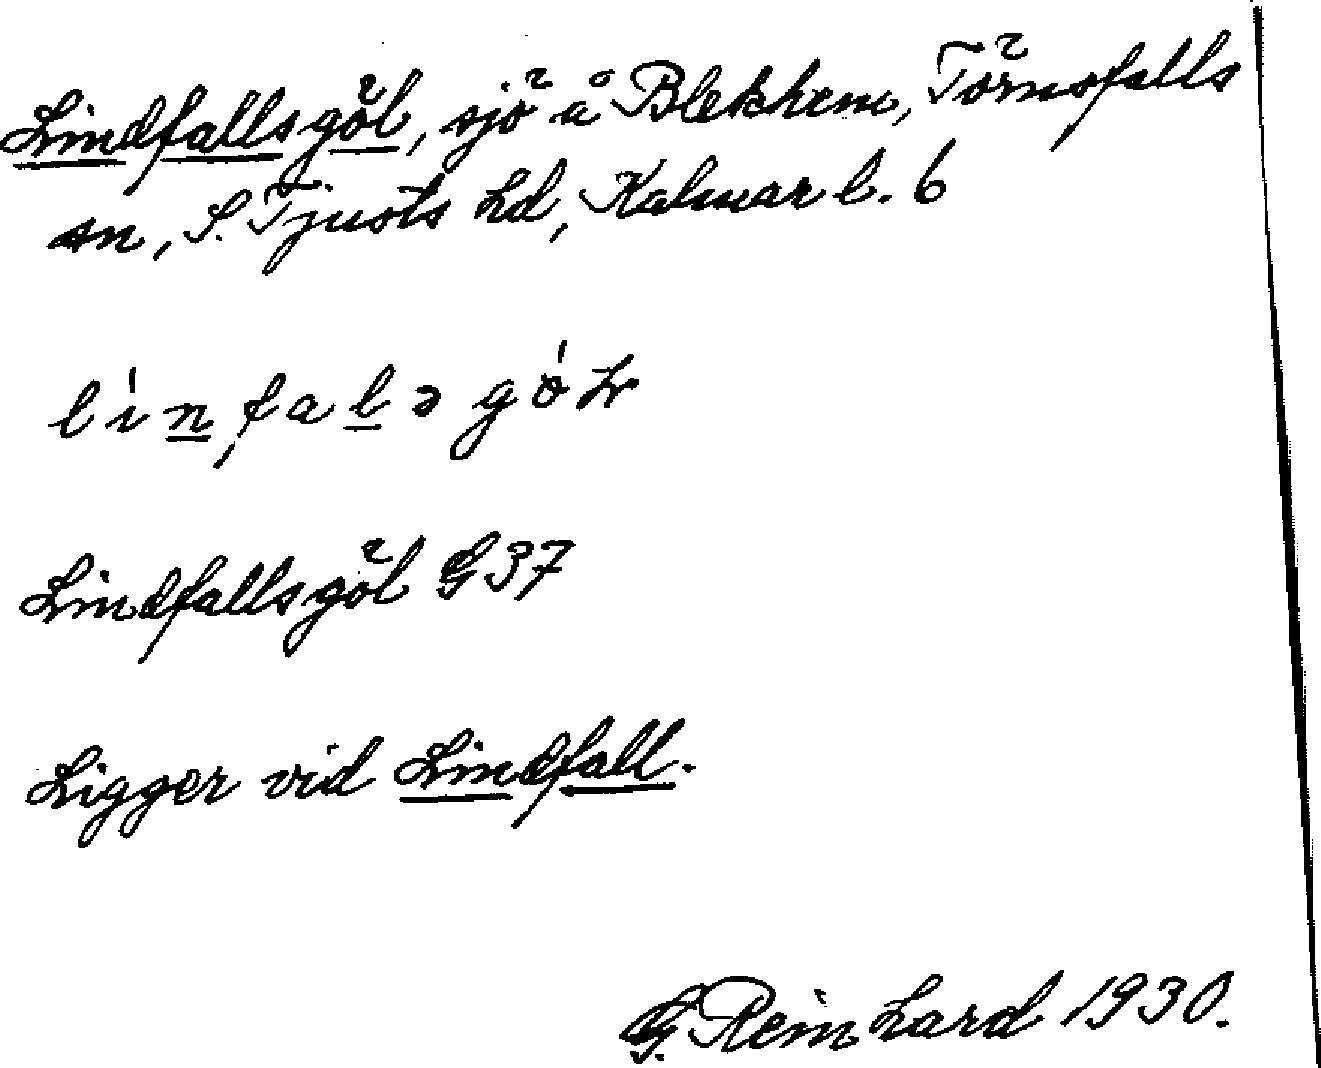 Lindfallsgöl, sjö å Blekhem, Törnsfalls
sn, S. Tjusts hd, Kalmar l. 6
li´nfalǝgö´л
Lindfallsgöl G 37
Ligger vid Lindfall.
G. Reinhard 1930.